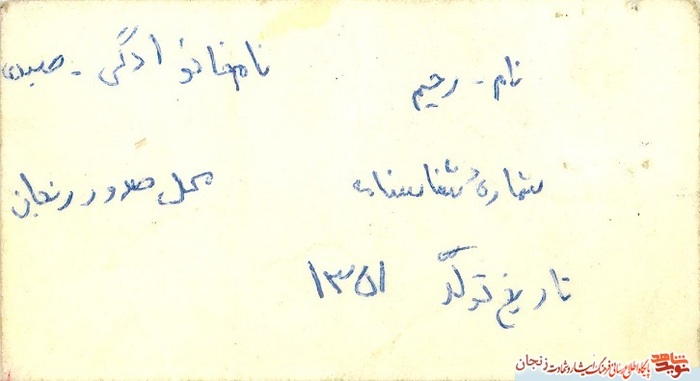 نام - رحیم نام خانوادگی - صیدی
شماره شناسنامه محل صدور زنجان
تاریخ تولد ۱۳۵۱
نوید شاهد پایگاه اطلاع رسانی فرهنگ ایثار و شهادت زنجان